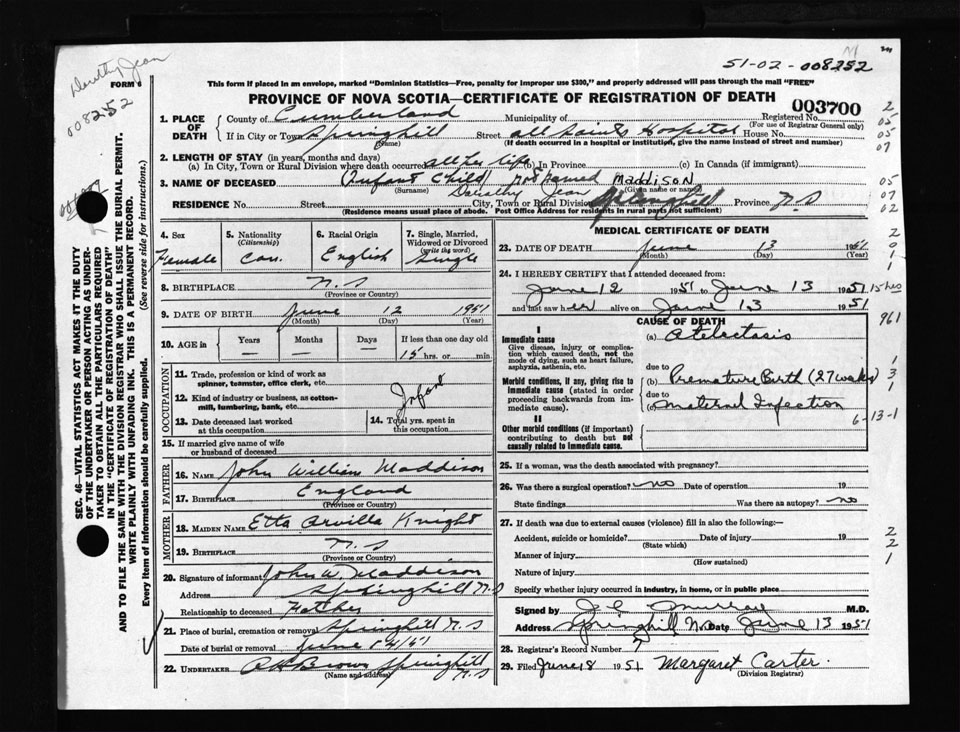 51-02-008252
Dorothy Jean
FORM 6
008252
This form if placed in an envelope, marked "Dominion Statistics—Free, penalty for improper use $300," and properly addressed will pass through the mail "FREE"
PROVINCE OF NOVA SCOTIA—CERTIFICATE OF REGISTRATION OF DEATH
003700
1. PLACE OF DEATH
County of Cumberland Municipality of Registered No.
(For use of Registrar General only)
If in City or Town Springhill Street All Saints Hospital House No.
(Name) (If death occurred in a hospital or institution, give name instead of street and number)
2. LENGTH OF STAY (in years, months and days)
(a) In City, Town or Rural Division where death occurred all her life (b) In Province (c) In Canada (if immigrant)
3. NAME OF DECEASED Infant Child not named MADDISON
(Surname) Dorothy Jean (Given name or names)
RESIDENCE No. Street City, Town or Rural Division Springhill Province N.S
(Residence means usual place of abode. Post Office Address for residents in rural parts not sufficient)
2
05
05
07
05
07
02
4. Sex
Female
5. Nationality
(Citizenship)
Can.
6. Racial Origin
English
7. Single, Married, Widowed or Divorced
(write the word)
Single
8. BIRTHPLACE N.S
(Province or Country)
9. DATE OF BIRTH June 12 1951
(Month) (Day) (Year)
10. AGE in Years Months Days If less than one day old
— — — 15 hrs. or min.
OCCUPATION
11. Trade, profession or kind of work as spinner, teamster, office clerk, etc.
12. Kind of industry or business, as cotton-mill, lumbering, bank, etc.
Infant
13. Date deceased last worked at this occupation
14. Total yrs. spent in this occupation
15. If married give name of wife or husband of deceased
FATHER
16. NAME John William Maddison
17. BIRTHPLACE England
(Province or Country)
MOTHER
18. MAIDEN NAME Etta Orvilla Knight
19. BIRTHPLACE N.S
(Province or Country)
20. Signature of informant John W. Maddison
Address Springhill N S
Relationship to deceased Father
21. Place of burial, cremation or removal Springhill N.S
Date of burial or removal June 14/51
22. UNDERTAKER Brown Springhill N.S
(Name and address)
MEDICAL CERTIFICATE OF DEATH
23. DATE OF DEATH June 13 1951
(Month) (Day) (Year)
24. I HEREBY CERTIFY that I attended deceased from:
June 12 1951 to June 13 1951 15 hrs
and last saw her alive on June 13 1951
CAUSE OF DEATH
I
Immediate cause
Give disease, injury or complication which caused death, not the mode of dying, such as heart failure, asphyxia, asthenia, etc.
(a) Atelectasis
due to
Morbid conditions, if any, giving rise to immediate cause (stated in order proceeding backwards from immediate cause).
(b) Premature Birth (27 weeks)
due to
(c) Maternal Infection
II
Other morbid conditions (if important) contributing to death but not causally related to immediate cause.
961
6-13-1
25. If a woman, was the death associated with pregnancy?
26. Was there a surgical operation? no Date of operation 19
State findings Was there an autopsy? no
27. If death was due to external causes (violence) fill in also the following:—
Accident, suicide or homicide? Date of injury 19
(State which)
Manner of injury
(How sustained)
Nature of injury
Specify whether injury occurred in industry, in home, or in public place
Signed by Murray M.D.
Address Springhill N.S Date June 13 1951
28. Registrar's Record Number 7
29. Filed June 18 1951 Margaret Carter.
(Division Registrar)
SEC. 46—VITAL STATISTICS ACT MAKES IT THE DUTY
OF THE UNDERTAKER OR PERSON ACTING AS UNDERTAKER TO OBTAIN ALL THE PARTICULARS REQUIRED
IN THE "CERTIFICATE OF REGISTRATION OF DEATH"
AND TO FILE THE SAME WITH THE DIVISION REGISTRAR WHO SHALL ISSUE THE BURIAL PERMIT.
WRITE PLAINLY WITH UNFADING INK. THIS IS A PERMANENT RECORD.
Every Item of Information should be carefully supplied. (See reverse side for instructions.)